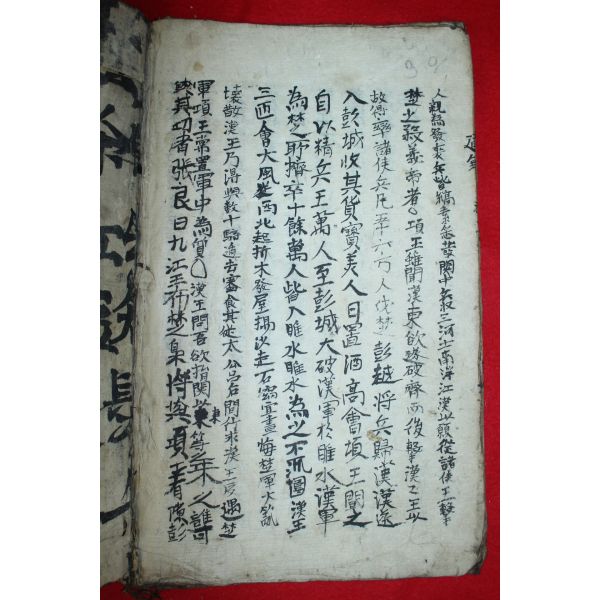 人親為發喪皆縞素悉發關中兵三河士南浮江漢以願從諸侯王擊
楚之殺義帝者〇項王雖聞漢東欲遂破齊而後擊漢之王以
故得率諸侯兵凡五十六万人伐楚彭越將兵歸漢漢遂
入彭城收其貨寶美人日置酒高會項王聞之
自以精兵王萬人至彭城大破漢軍於睢水漢軍
為楚所擠卒十餘萬人皆入睢水睢水為之不流圍漢王
三匝會大風從西北起折木發屋揚沙走石窈冥晝晦楚軍大亂
壞散漢王乃得與數十騎遁去審食其從太公呂后間行求漢王反遇楚
軍項王常置軍中為質〇漢王問吾欲捐關以東等棄之誰可
與共功者張良曰九江王布楚梟將與項王有隙彭